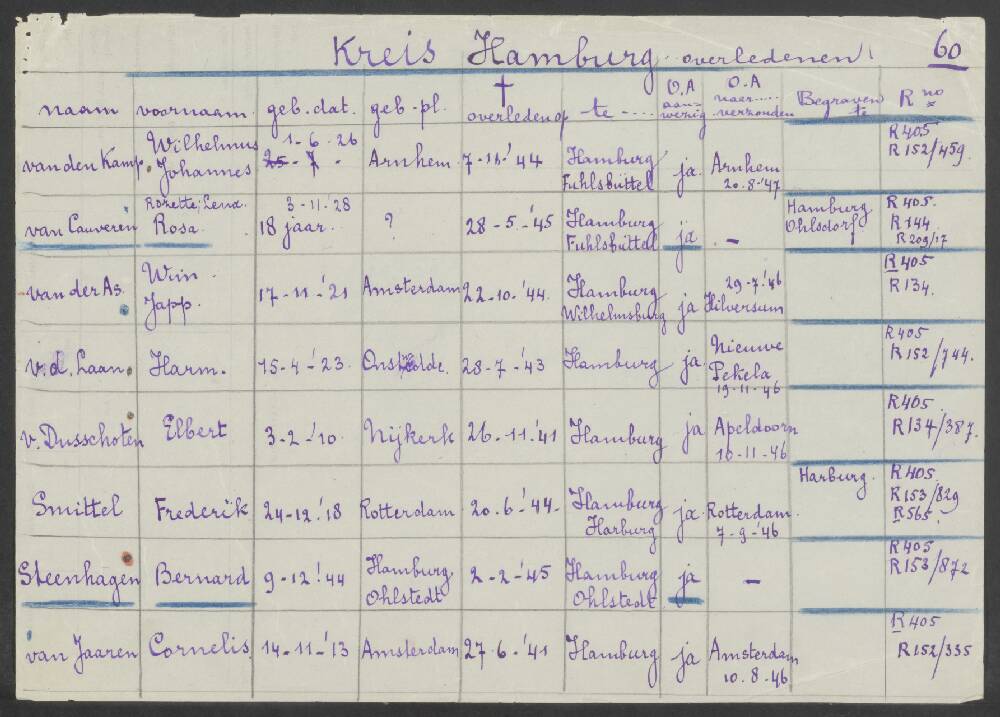 Kreis Hamburg overledenen! 60
naam voornaam geb. dat. geb-pl. † overleden op te .... O.A aan-wezig O.A naar.... verzonden Begraven te R no
van den Kamp. Wilhelmus Johannes 1-6.26 25-7. Arnhem 7-11-'44 Hamburg Fuhlsbüttel ja. Arnhem 20.8-'47 R405 R152/459.
van Cauveren Rosa 3-11-'28 18 jaar. ? 28-5-'45 Hamburg Fuhlsbüttel ja - Hamburg Ohlsdorf R405. R144 R209/17
van der As. Wim Japp. 17-11-'21 Amsterdam 22-10-'44. Hamburg Wilhelmsburg ja 29-7-'46 Hilversum R405 R134.
v.d. Laan. Harm. 15-4-'23. 28-7-'43 Hamburg ja. Nieuwe Pekela 19-11-46 R405 R152/744.
v. Dusschoten Elbert 3-2-'10. Nijkerk 26-11-'41 Hamburg ja Apeldoorn 10-11-46 R405. R134/387.
Smittel Frederik 24-12-'18 Rotterdam 20.6-'44- Hamburg Harburg ja. Rotterdam. 7-9-'46 Harburg. R405. R153/829 R565.
Steenhagen Bernard 9-12-'44 Hamburg Ohlstedt 2-2-'45 Hamburg Ohlstedt ja - R405 R153/872
van Jaaren Cornelis. 14-11-'13 Amsterdam 27-6-'41 Hamburg ja Amsterdam 10.8-46 R405 R152/335